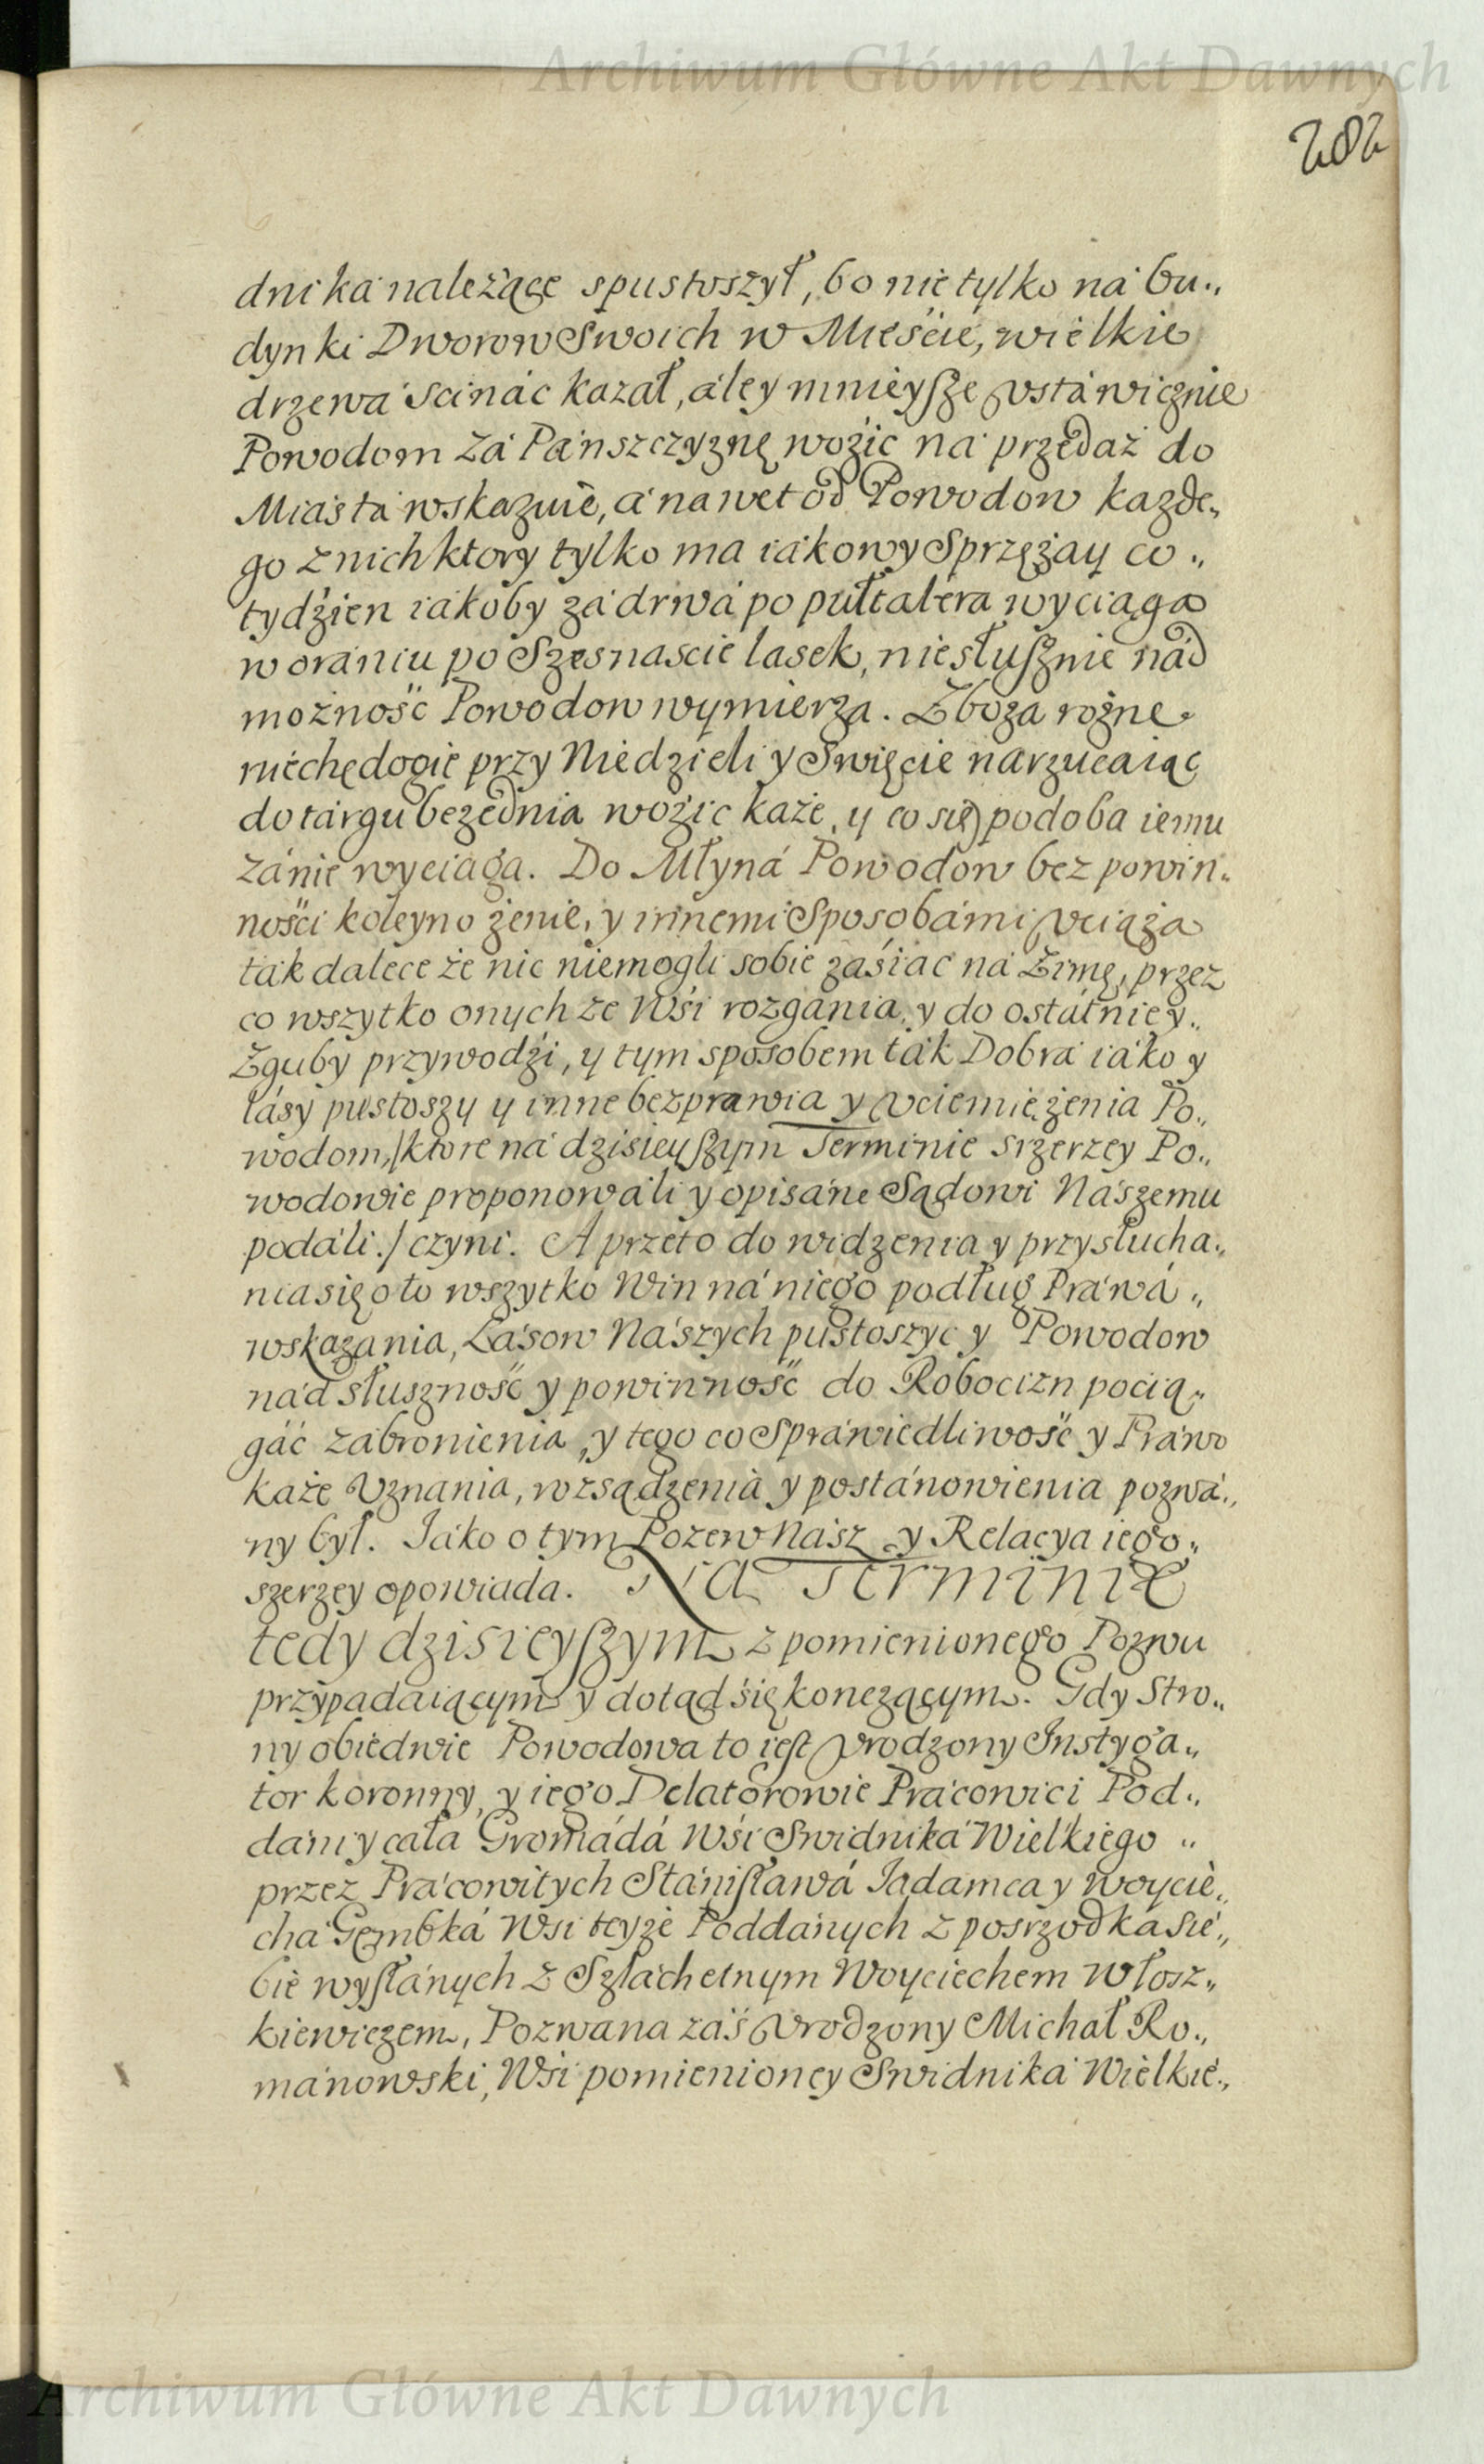 Archiwum Główne Akt Dawnych
202
dnika należące spustoszył, bo nie tylko na bu„
dynki Dworow Swoich w Mieście, wielkie
drzewa scinać kazał, ale y mnieysze vstawicznie
Powodom za Panszczyznę wozić na przedaż do
Miasta wskazuie, a nawet od Powodow kazde„
go z nich ktory tylko ma iakowy Sprzężay co„
tydżien iakoby za drwa po pułtalera wyciąga
w oraniu po Szesnascie lasek, niesłusznie nad
możność Powodow wymierza. Zboza rożne
niechędogie przy Niedzieli y Swięcie narzucaiąc
do targu bezednia wozić każe, y co się podoba iemu
zanie wyciąga. Do Młyná Powodow bez powin„
ności koleyno żenie, y innemi Sposobami vciąża
tak dalece że nic niemogli sobie zaśiac na Zimę, przez
co wszytko onych ze Wśi rozgania, y do ostatniey„
Zguby przywodźi, y tym sposobem tak Dobra iako y
lasy pustoszy y inne bezprawia y vciemiężenia Po„
wodom, /ktore na dzisieyszym Terminie szerzey Po„
wodowie proponowali y opisane Sądowi Naszemu
podali./ czyni. A przeto do widzenia y przysłucha„
nia się o to wszytko Win ná niego podług Prawá„
wskazania, Lasow Naszych pustoszyc y Powodow
nad słuszność y powinność do Robocizn pocią„
gáć zabronienia, y tego co Sprawiedliwość y Prawo
każe Vznania, rozsądzenia y postanowienia pozwa„
ny był. Jako o tym Pozew Nasz y Relacya iego„
szerzey opowiada. Na Terminie
tedy dzisieyszym z pomienionego Pozwu
przypadaiącym y dotąd się konczącym. Gdy Stro„
ny obiedwie Powodowa to iest Vrodzony Instyga„
tor koronny, y iego Delatorowie Pracowici Pod„
dani y cała Gromádá Wśi Swidnika Wielkiego „
przez Pracowitych Stanisławá Jadamca y Woycie„
cha Gembká Wsi teyże Poddanych z posrzodka sie„
bie wysłanych z Szlachetnym Woyciechem Włosz„
kiewiczem, Pozwana zaś Vrodzony Michał Ro„
manowski, Wsi pomienioney Swidnika Wielkie„
Archiwum Główne Akt Dawnych